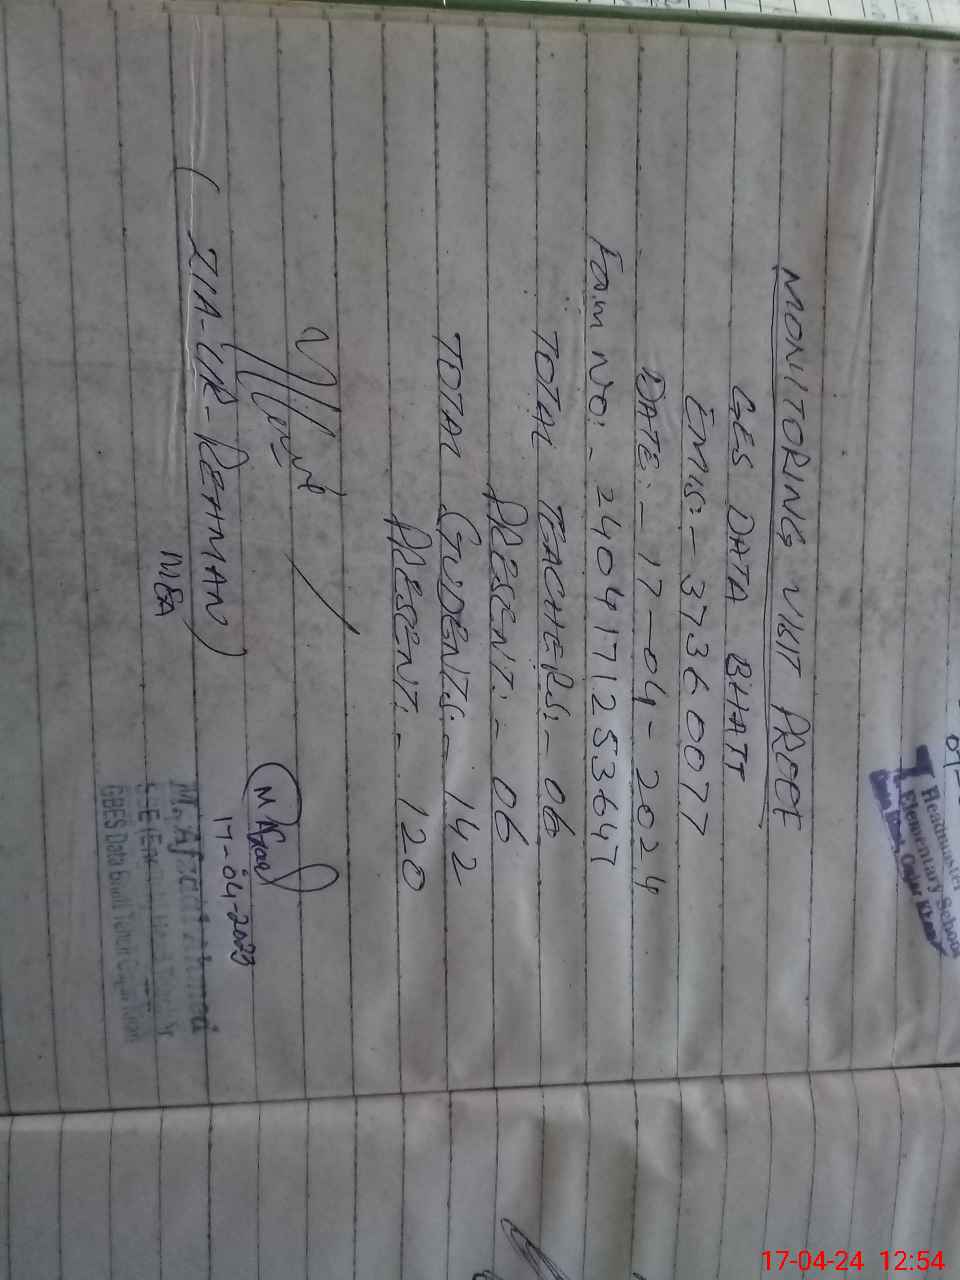 Headmaster
Elementary School
MONITORING VISIT PROOF
GES DATA BHATT
EMIS:- 37360077
DATE:- 17-04-2024
Form NO:- 2404171253647
TOTAL TEACHERS:- 06
PRESENT:- 06
TOTAL STUDENTS:- 142
PRESENT:- 120
M Afzaal
17-04-2023
(ZIA-UR-REHMAN)
MEA
M. Afzaal Ahmad
SSE
GBES Data Bhatt
17-04-24 12:54